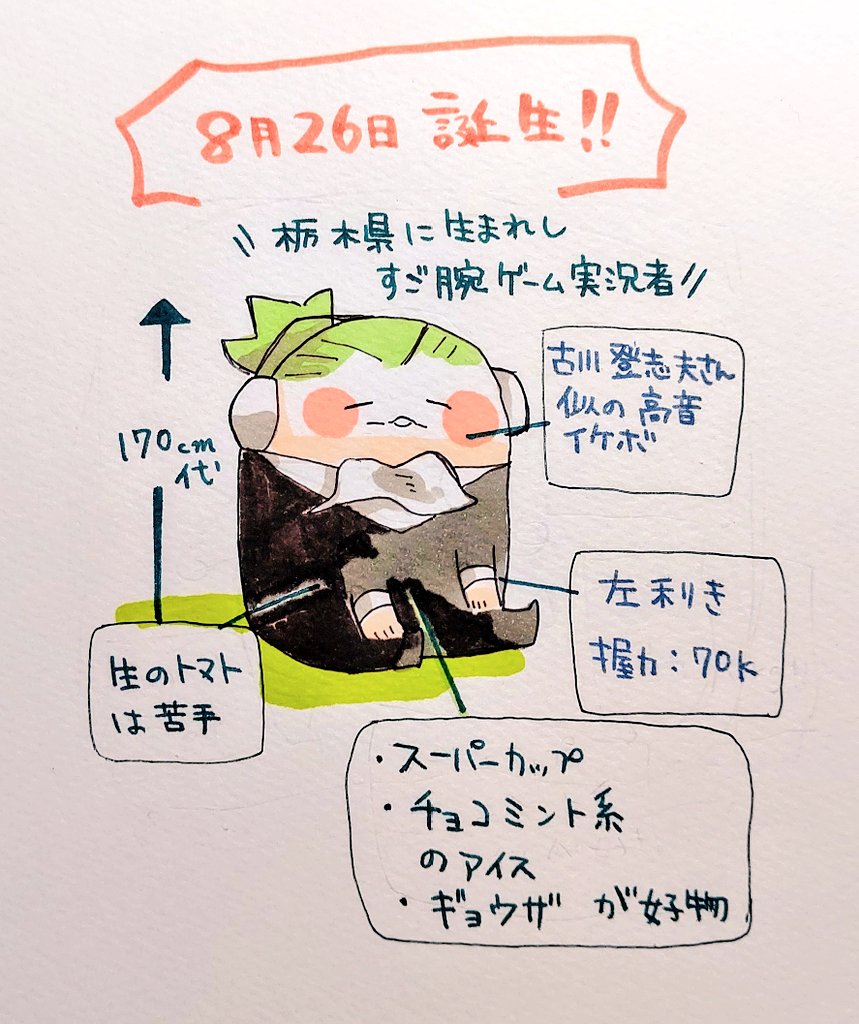 8月26日 誕生!!
\\ 栃木県に生まれし
すご腕ゲーム実況者 //
古川登志夫さん
似の高音
イケボ
170cm
代
左利き
握力：70k
生のトマト
は苦手
・スーパーカップ
・チョコミント系
のアイス
・ギョウザ が好物